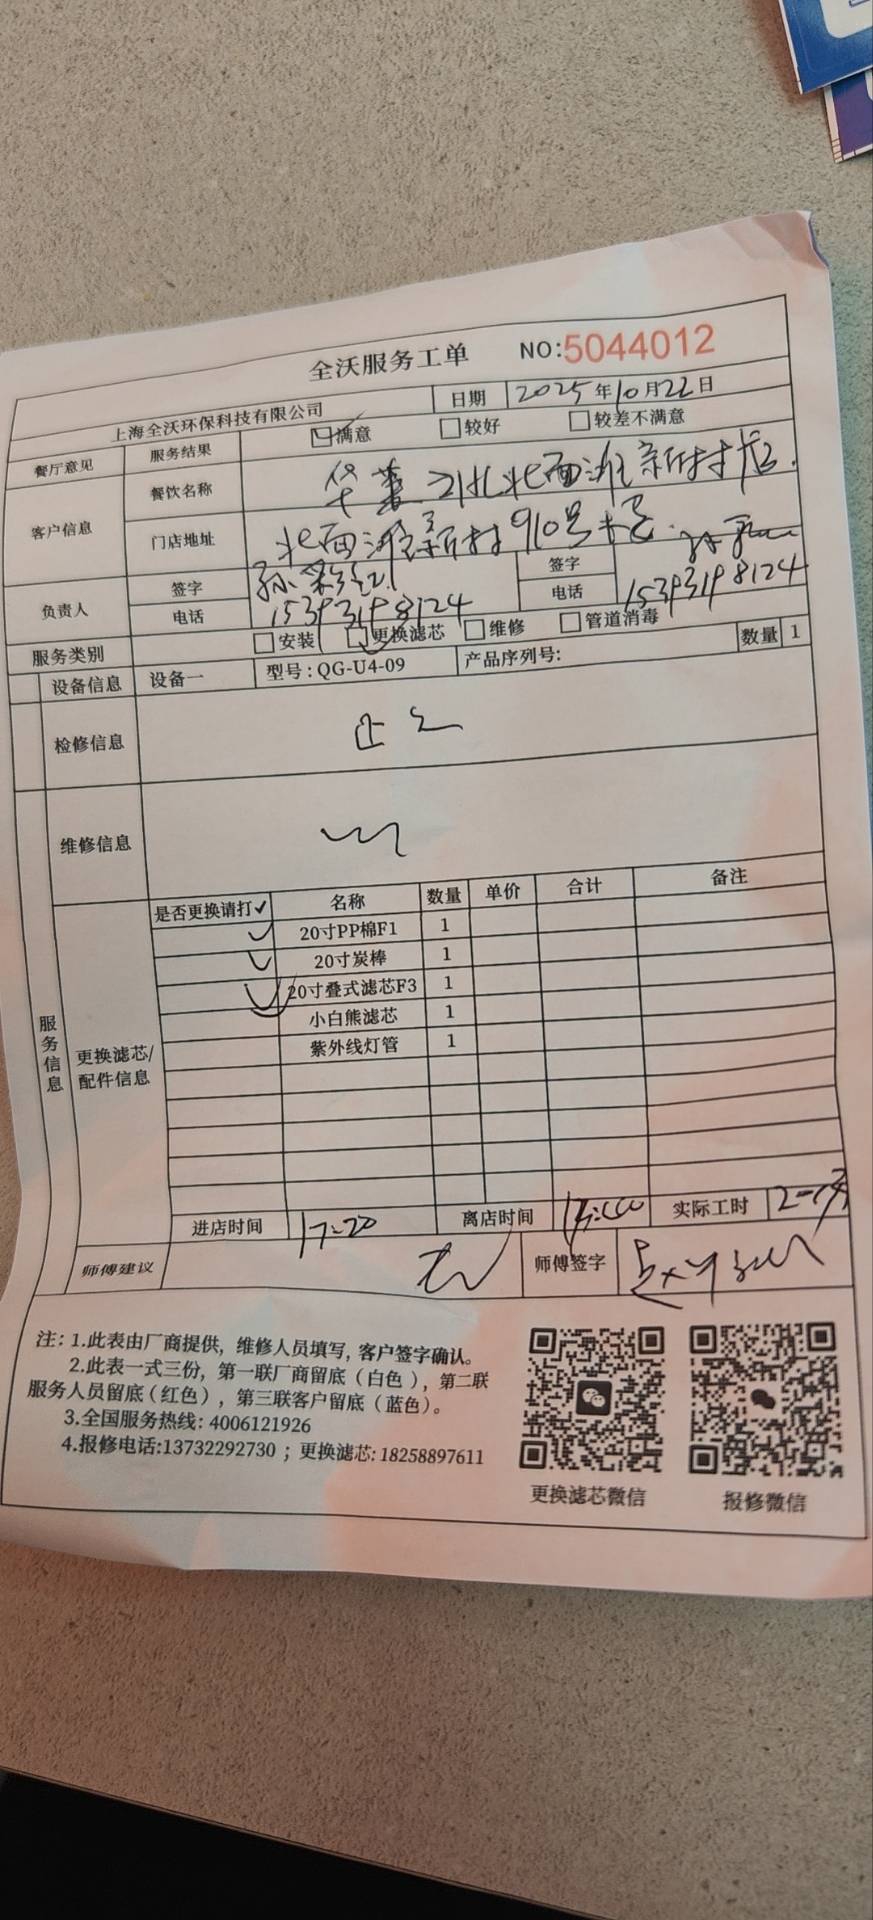 全沃服务工单 NO:5044012
上海全沃环保科技有限公司 日期 2025年10月22日
餐厅意见 服务结果 满意 较好 较差不满意
客户信息 餐饮名称 华莱 北面滩新村店.
门店地址 北面滩新村910号
负责人 签字 孙彩红 签字
电话 15393198124 电话 15393198124
服务类别 安装 更换滤芯 维修 管道消毒
设备信息 设备一 型号:QG-U4-09 产品序列号: 数量 1
检修信息
维修信息
服务信息
更换滤芯/配件信息
是否更换请打✓ 名称 数量 单价 合计 备注
✓ 20寸PP棉F1 1
✓ 20寸炭棒 1
✓ 20寸叠式滤芯F3 1
小白熊滤芯 1
紫外线灯管 1
进店时间 17:20 离店时间 实际工时
师傅建议 师傅签字
注: 1.此表由厂商提供, 维修人员填写, 客户签字确认。
2.此表一式三份, 第一联厂商留底(白色), 第二联
服务人员留底(红色), 第三联客户留底(蓝色)。
3.全国服务热线: 4006121926
4.报修电话:13732292730 ; 更换滤芯: 18258897611
更换滤芯微信 报修微信